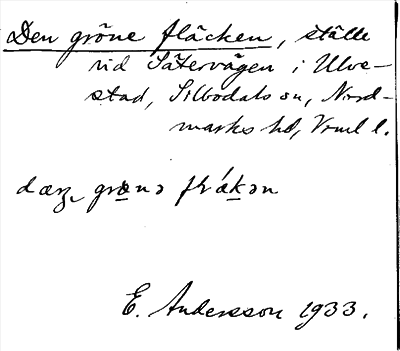 Den gröne fläcken, ställe
vid Sätervägen i Ulve-
stad, Silbodals sn, Nord-
marks hd, Vrml l.
grø̲nə
E. Andersson 1933.